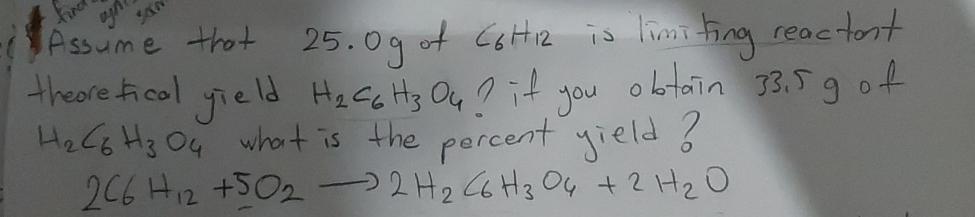 Assume that 25.0g of C6H12 is limiting reactant
theoretical yield H2C6H3O4? if you obtain 33.5 g of
H2C6H3O4 what is the percent yield?
2C6H12 + 5O2 → 2H2C6H3O4 + 2H2O